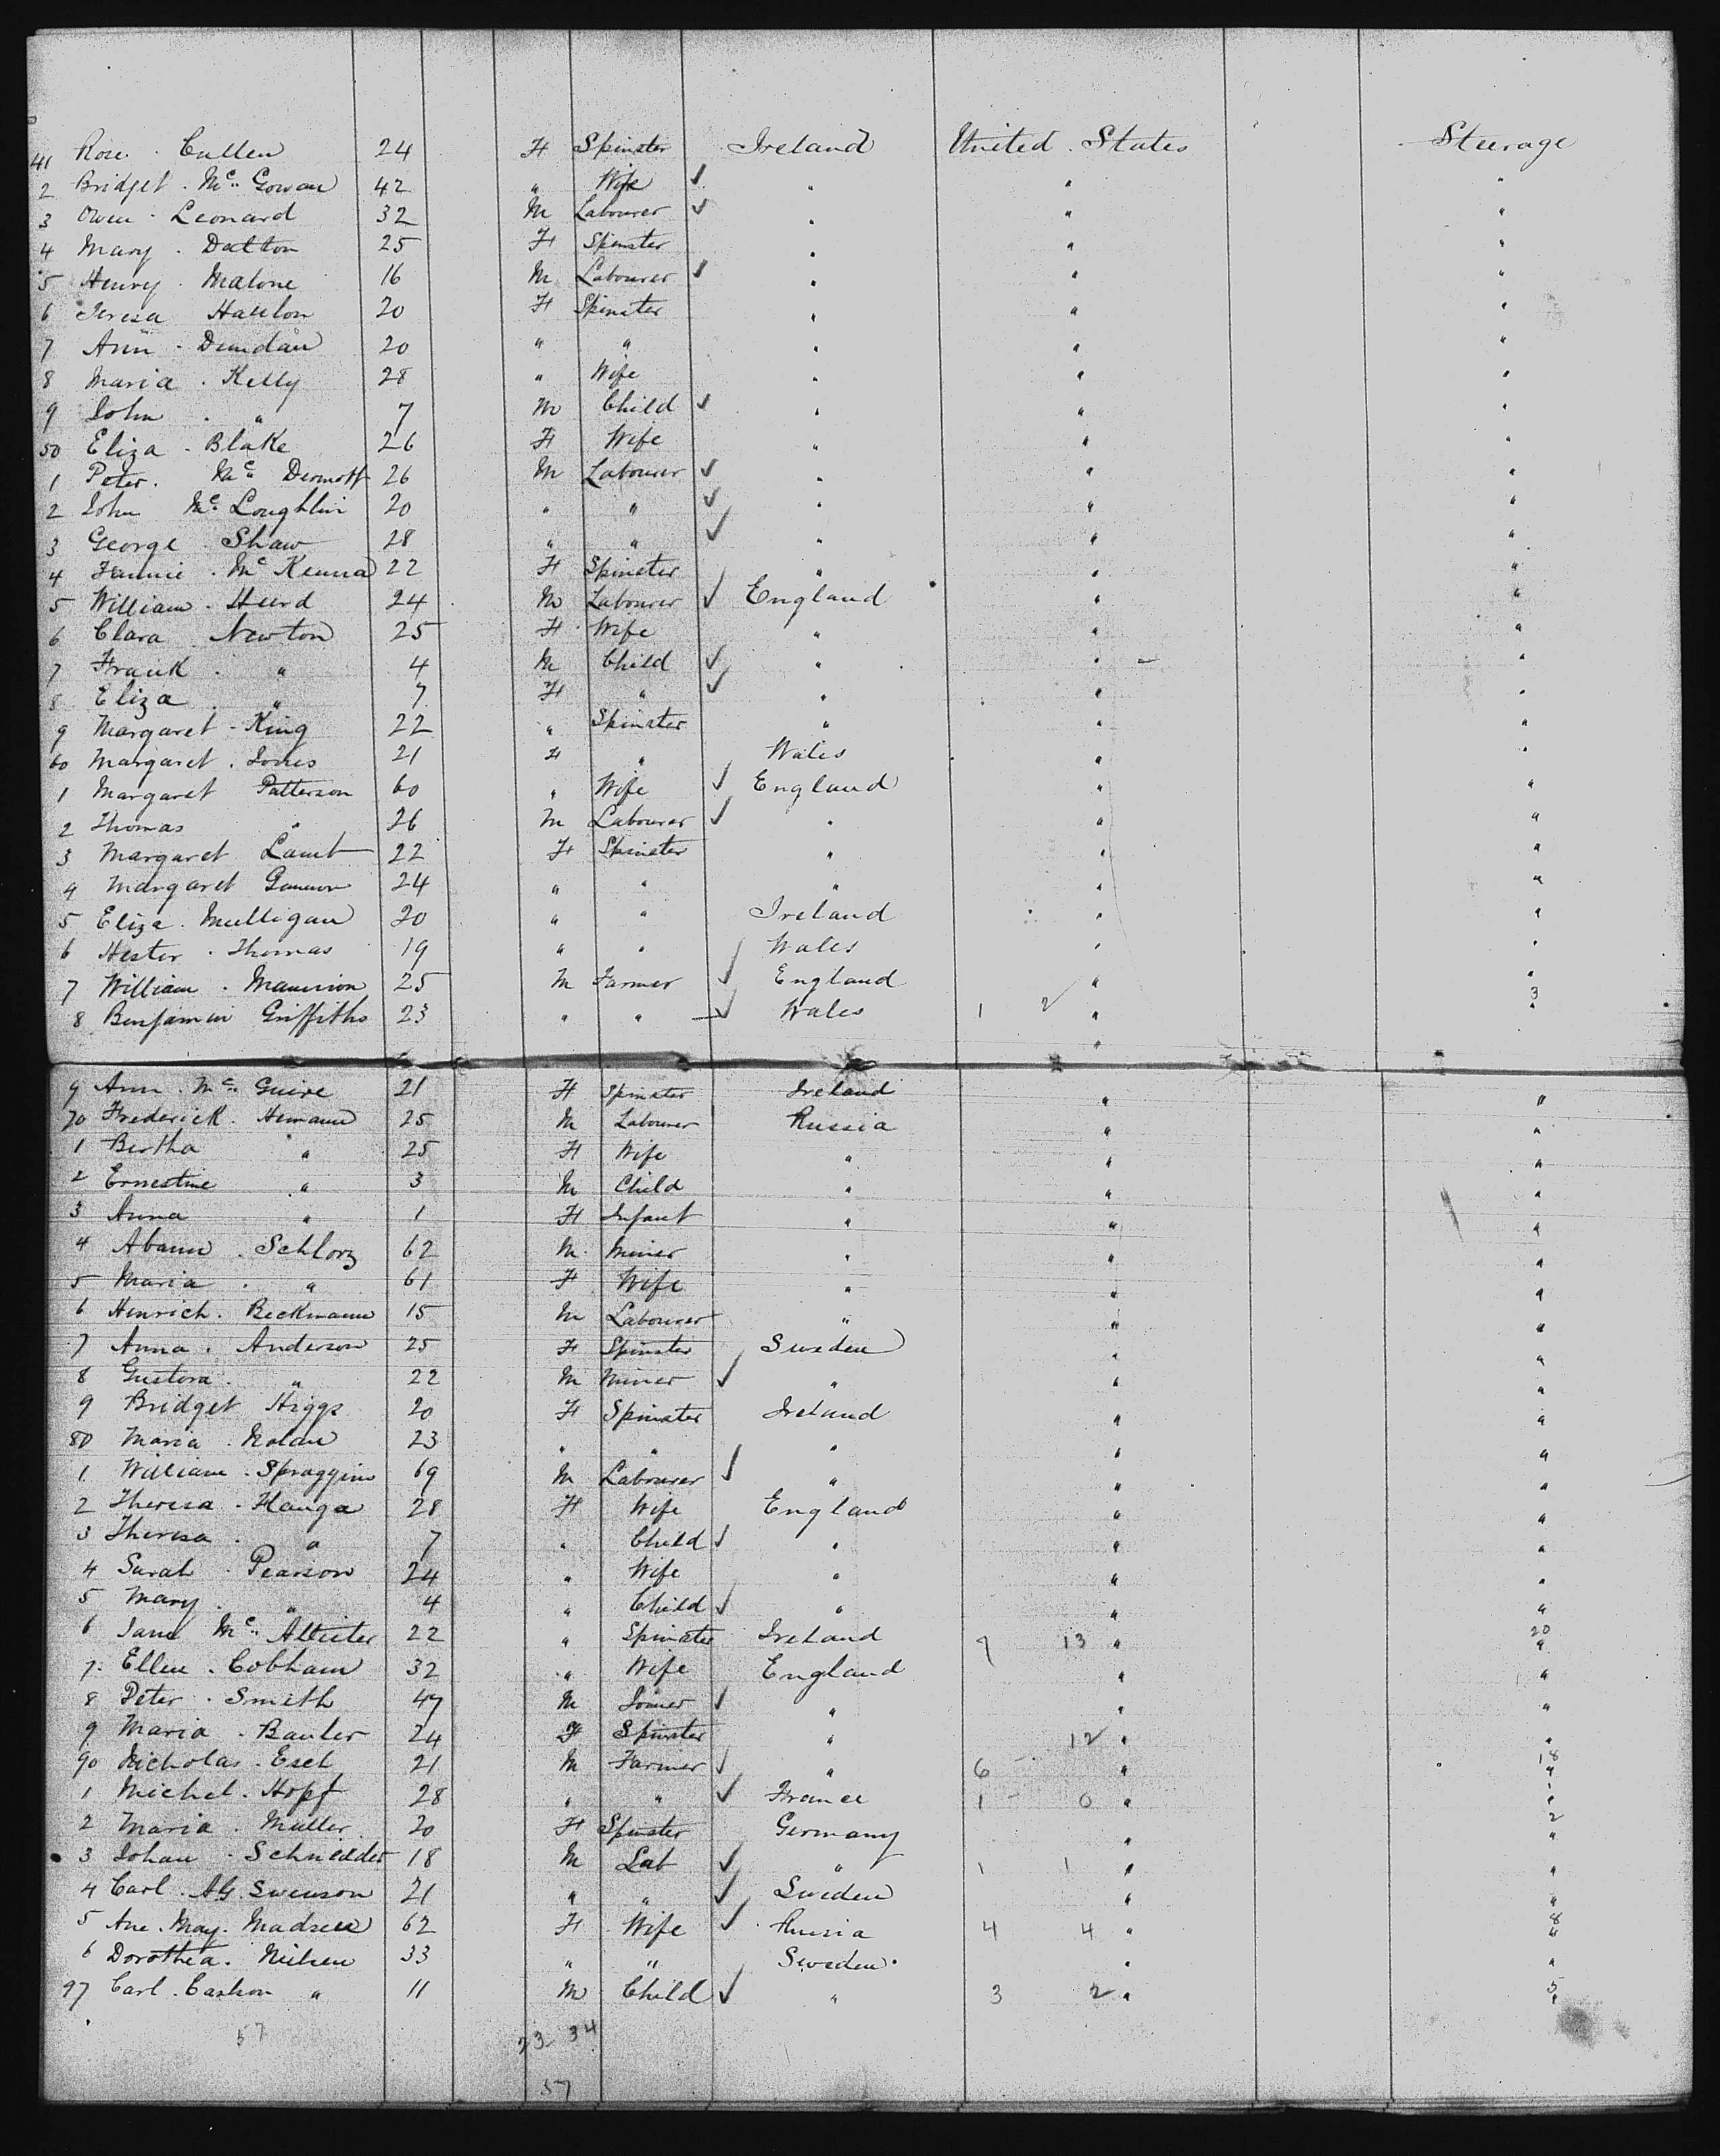 41 Rose . Cullen 24 F Spinster Ireland United . States Steerage
2 Bridget . Mc Gowan 42 " Wife ✓ " " "
3 Owen . Leonard 32 M Labourer ✓ " " "
4 Mary . Dalton 25 F Spinster " " "
5 Henry . Malone 16 M Labourer ✓ " " "
6 Teresa Hanlon 20 F Spinster " " "
7 Ann . 20 " " " " "
8 Maria . Kelly 28 " Wife " " "
9 John . " 7 M Child ✓ " " "
50 Eliza . Blake 26 F Wife " " "
1 Peter . Mc Dermott 26 M Labourer ✓ " " "
2 John Mc Loughlin 20 " " ✓ " " "
3 George . Shaw 28 " " ✓ " " "
4 Fannie . Mc Kenna 22 F Spinster " " "
5 William . Hurd 24 M Labourer ✓ England " "
6 Clara . Newton 25 F Wife " " "
7 Frank . " 4 M Child ✓ " " "
8 Eliza . " 7 F " ✓ " " "
9 Margaret - King 22 " Spinster " " "
60 Margaret . Jones 21 F " Wales " "
1 Margaret Patterson 60 " Wife ✓ England " "
2 Thomas " 26 M Labourer ✓ " " "
3 Margaret Lamb 22 F Spinster " " "
4 Margaret Gannon 24 " " " " "
5 Eliza . Mulligan 20 " " Ireland " "
6 Hester . Thomas 19 " " ✓ Wales " "
7 William . 25 M Farmer ✓ England " "
8 Benjamin Griffiths 23 " " ✓ Wales 1 2 " 3 "
9 Ann . Mc Guire 21 F Spinster Ireland " "
70 Frederick . Hemann 25 M Labourer Russia " "
1 Bertha " 25 F Wife " " "
2 Ernestine " 3 M Child " " "
3 Anna " 1 F Infant " " "
4 . Schlorz 62 M Miner " " "
5 Maria . " 61 F Wife " " "
6 Heinrich . Beckmann 15 M Labourer " " "
7 Anna . Anderson 25 F Spinster Sweden " "
8 Gustova . " 22 M Miner ✓ " " "
9 Bridget Higgs 20 F Spinster Ireland " "
80 Maria . Nolan 23 " " " " "
1 William . Spraggins 69 M Labourer ✓ " " "
2 Theresa . Hanga 28 F Wife England " "
3 Theresa . " 7 " Child ✓ " " "
4 Sarah . Pearson 24 " Wife " " "
5 Mary . " 4 " Child ✓ " " "
6 Jane Mc 22 " Spinster Ireland 7 13 " 20 "
7 Ellen . Cobham 32 " Wife England " "
8 Peter . Smith 47 M Joiner ✓ " " "
9 Maria . 24 F Spinster " 12 " "
90 Nicholas . Esch 21 M Farmer ✓ " 6 " 18 "
1 Michel . Hopf 28 " " ✓ France 1 0 " 1 "
2 Maria . Muller 20 F Spinster Germany " 2 "
3 Johan . Schneidder 18 M Lab ✓ " 1 1 " "
4 Carl . AG. Swenson 21 " " ✓ Sweden " "
5 Ane . May . Madsen 62 F Wife ✓ Russia 4 4 " 8 "
6 Dorothea . Nielsen 33 " " Sweden " "
97 Carl . Carlson " 11 M Child ✓ " 3 2 " 5 "
57 23 34
57